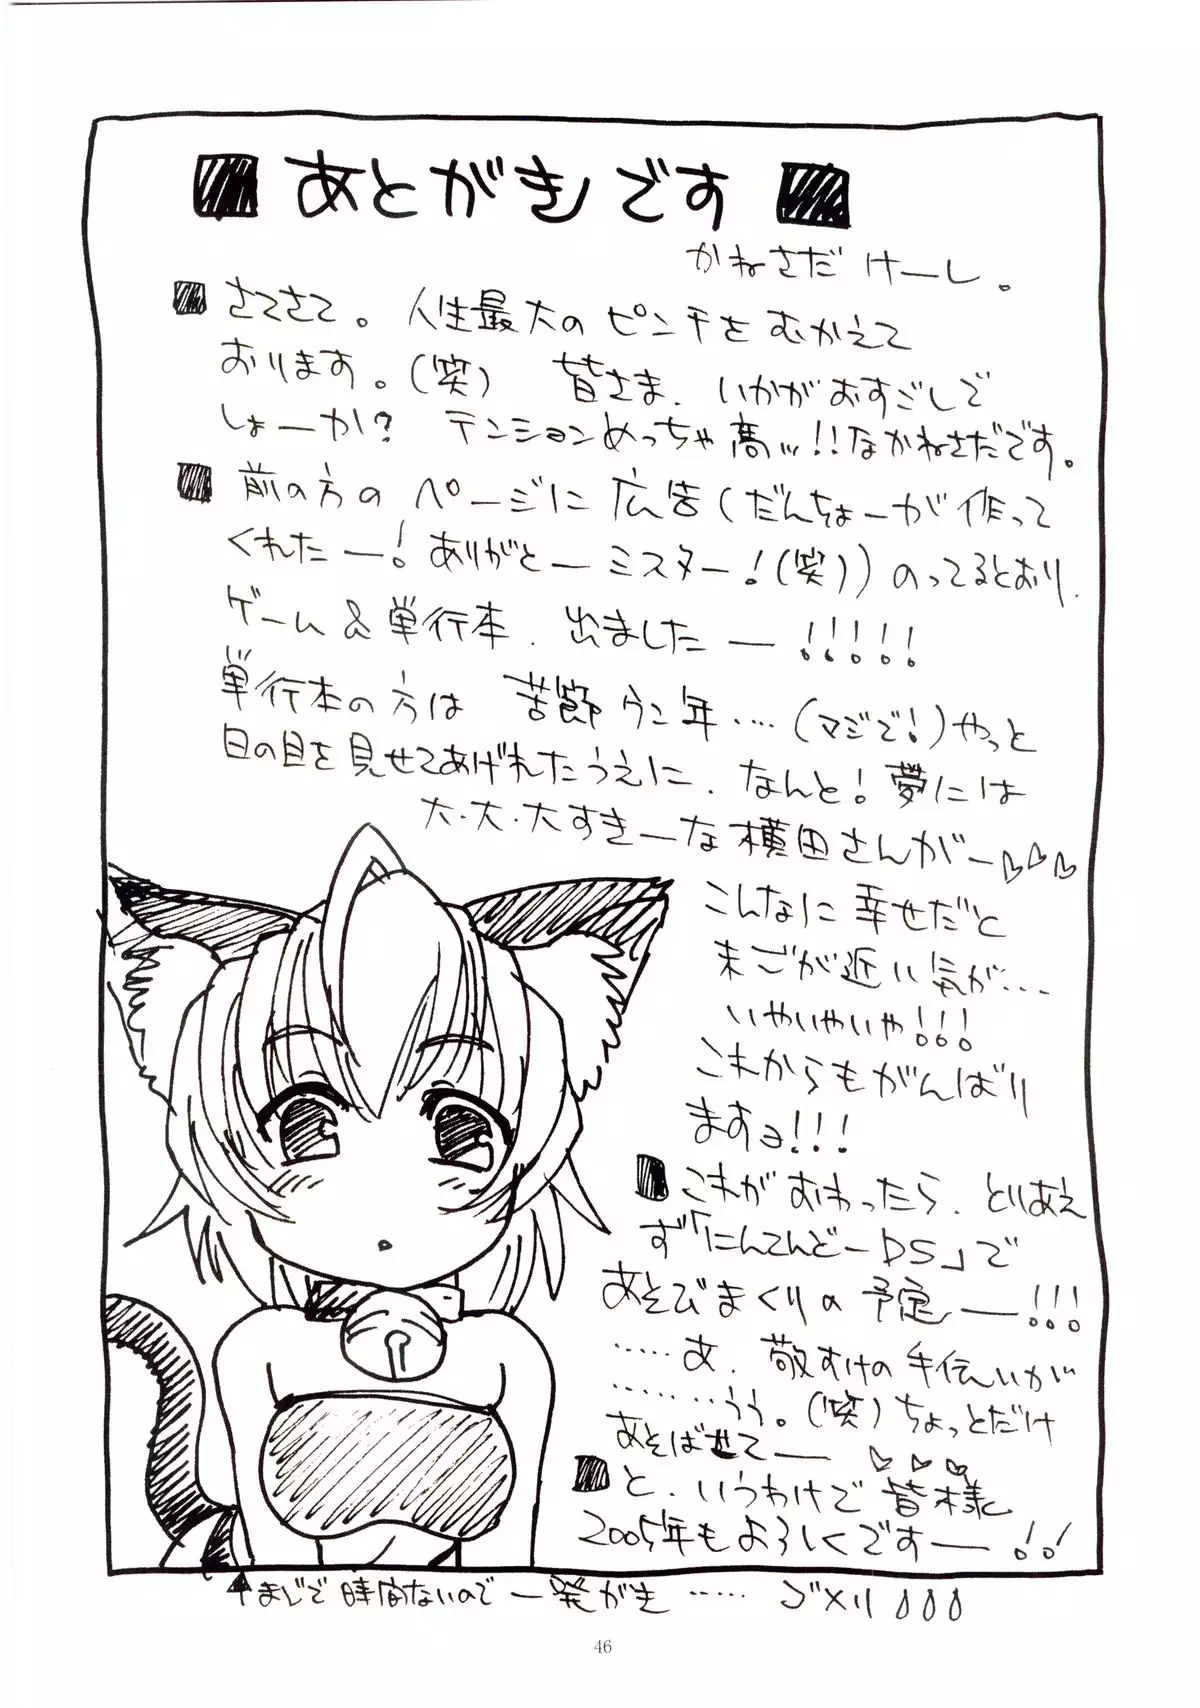 ■ あとがきです ■
かねさだ けーし。
■さてさて。人生最大のピンチをむかえて
おります。(笑) 皆さま、いかがおすごしで
しょーか? テンションめっちゃ高ッ!!なかねさだです。
■前の方のページに広告(だんちょーが作って
くれたー!ありがとーミスター!(笑))のってるとおり、
ゲーム&単行本、出ましたー!!!!!
単行本の方は苦節ウン年‥‥(マジで!)やっと
日の目を見せてあげれたうえに、なんと!夢には
大・大・大すきーな横田さんがー♡♡♡
こんなに幸せだと
まごが近い気が‥‥
いやいやいや!!!
これからもがんばり
ますョ!!!
■これがおわったら、とりあえ
ず「にんてんどーDS」で
あそびまくりの予定ー!!!
‥‥‥あ、敬すけの手伝いが
‥‥‥‥うう。(笑)ちょっとだけ
あそばせてー♡♡♡
■と、いうわけで皆様
2005年もよろしくですー!!
↑まじで時間ないので一発がき‥‥‥ゴメリ
46